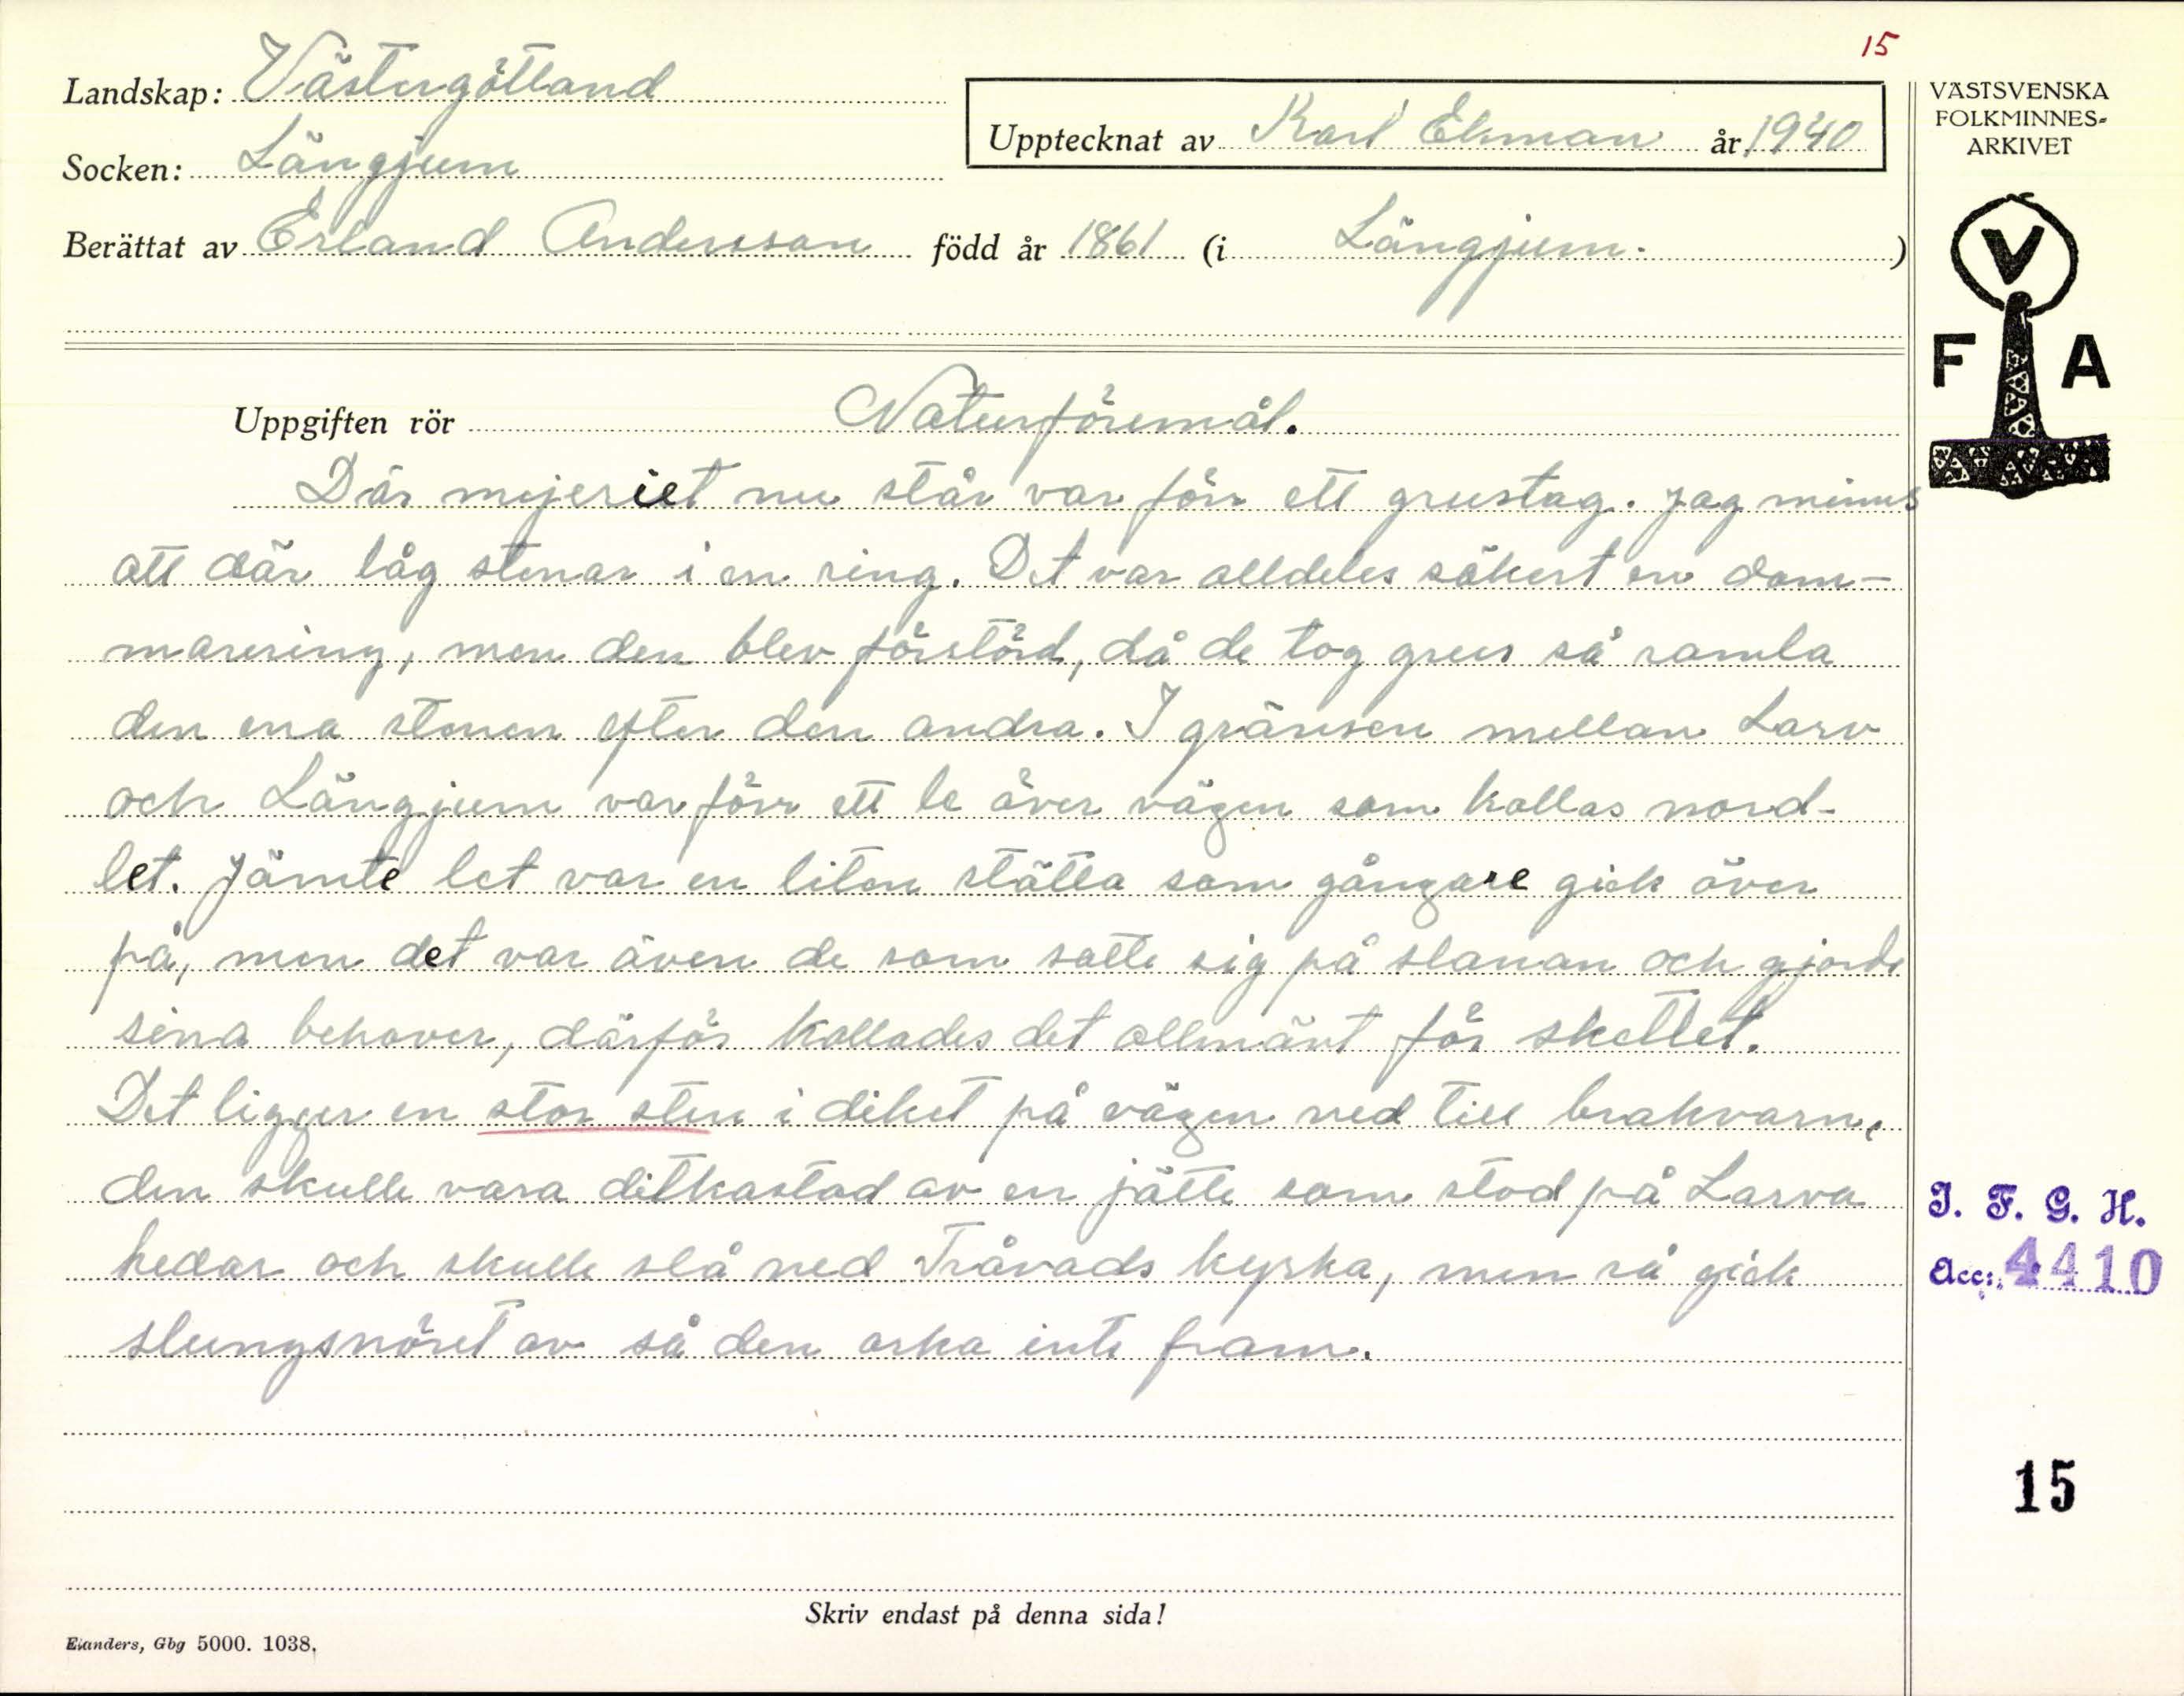 15
Landskap: Västergötland
Upptecknat av Karl Ekman år 1940
Socken: Längjum
Berättat av Erland Andersson född år 1861 (i Längjum. )
VÄSTSVENSKA
FOLKMINNES-
ARKIVET
V
F A
Uppgiften rör Naturföremål.
Där mejeriet nu står var förr ett grustag. Jag minns
att där låg stenar i en ring. Det var alldeles säkert en dom-
marering, men den blev förstörd, då de tog grus så ramla
den ena stenen efter den andra. I gränsen mellan Larv
och Längjum var förr ett le över vägen som kallas nord-
let. Jämte let var en liten stätta som gångare gick över
på, men det var även de som satte sig på slanan och gjorde
sina behover, därför kallades det allmänt för skettlet.
Det ligger en stor sten i diket på vägen ned till brakvarn,
den skulle vara ditkastad av en jätte som stod på Larva
hedar och skulle slå ned Tråvads kyrka, men så gick
slungsnöret av så den orka inte fram.
I. F. G. H.
Acc: 4410
15
Skriv endast på denna sida!
Elanders, Gbg 5000. 1038.